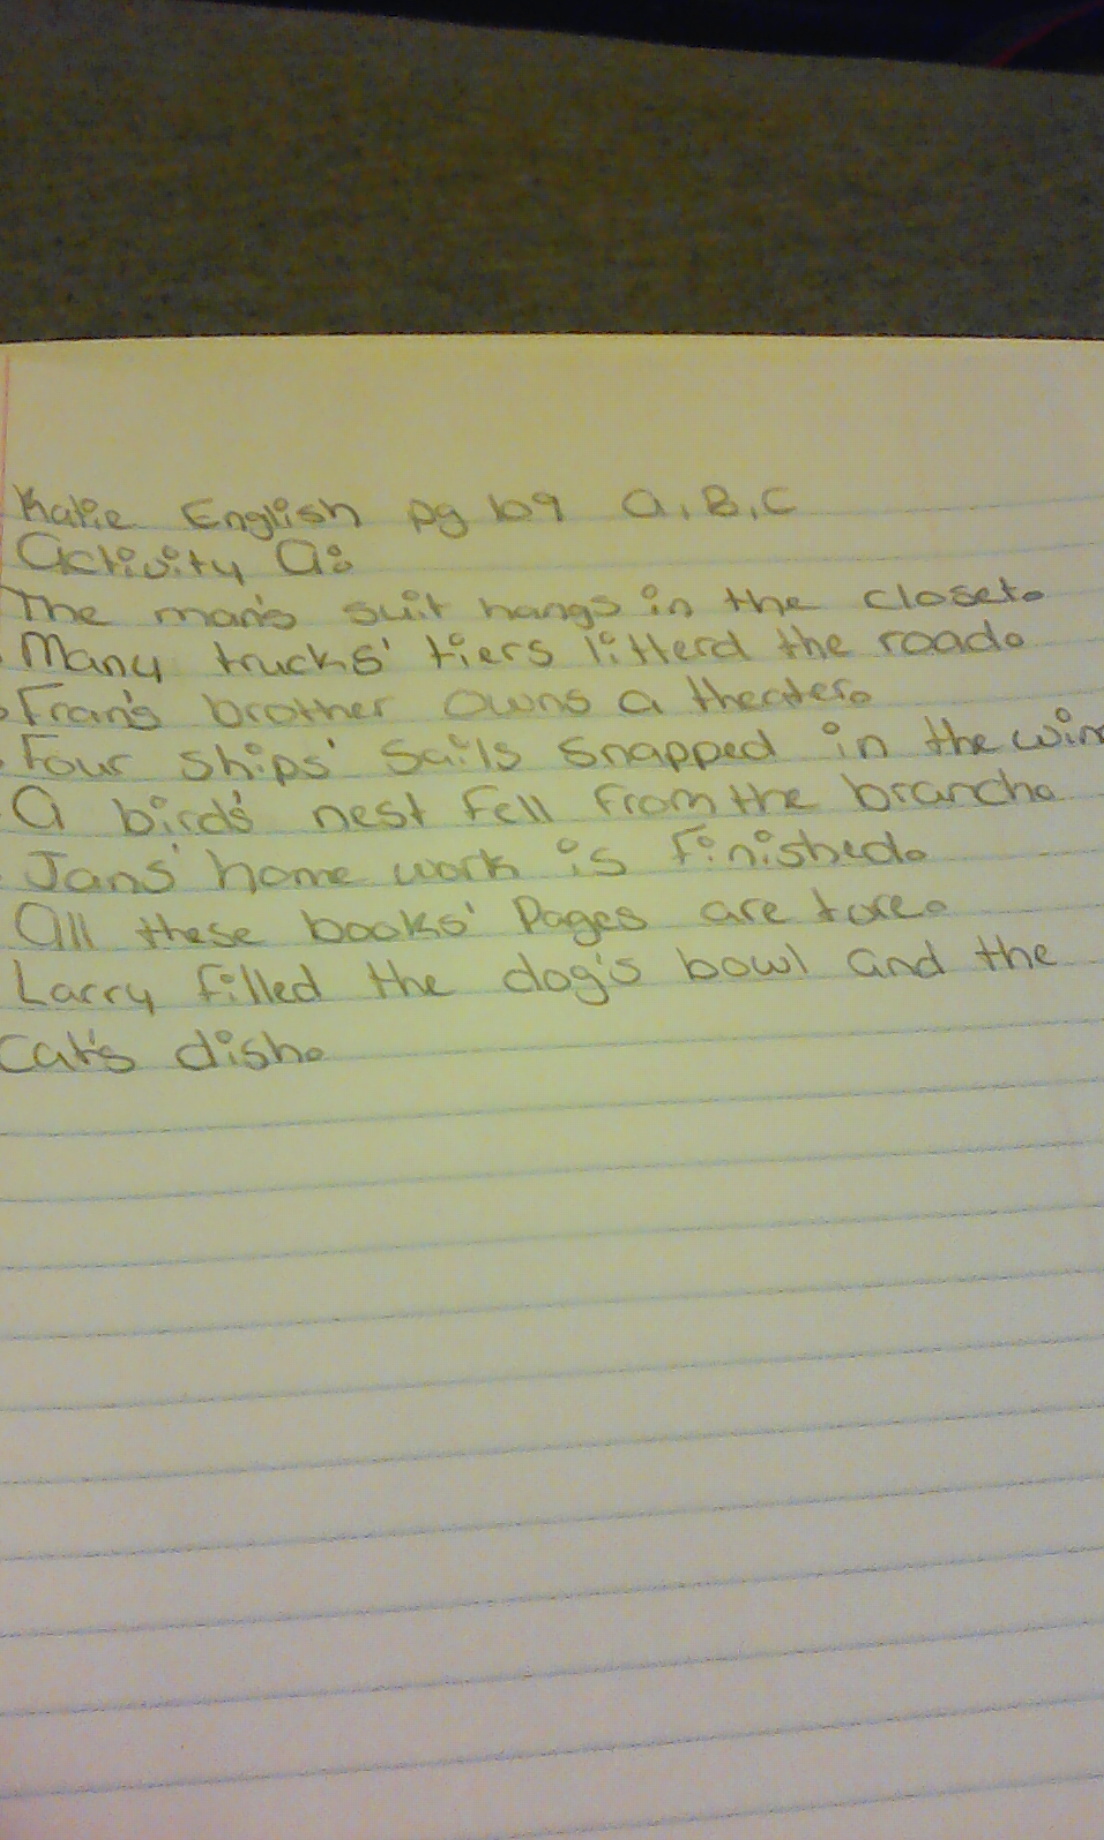 Katie English pg 69 A, B, C
Activity A:
The man's suit hangs in the closet.
Many trucks' tiers litterd the road.
Fran's brother owns a theater.
Four ships' sails snapped in the win
A bird's nest fell from the branch.
Jans' home work is finished.
All these books' pages are tore.
Larry filled the dog's bowl and the
cat's dish.